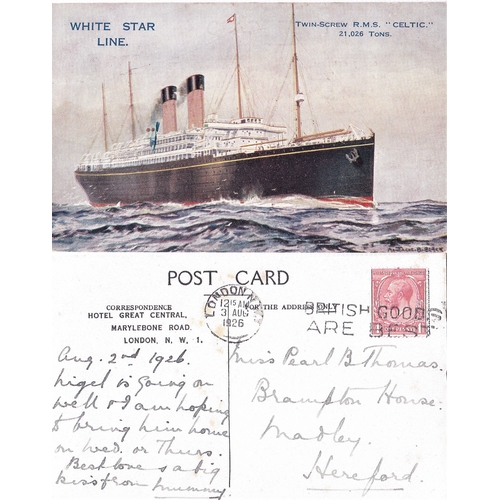 WHITE STAR
LINE.
TWIN-SCREW R.M.S. "CELTIC."
21,026 TONS.
POST CARD
CORRESPONDENCE
HOTEL GREAT CENTRAL,
MARYLEBONE ROAD.
LONDON, N. W. 1.
FOR THE ADDRESS ONLY
LONDON. N.W.1
12 15 AM
3 AUG
1926
BRITISH GOODS
ARE BEST
Aug. 2nd 1926.
Nigel is going on
well & I am hoping
to bring him home
on Wed. or Thurs.
Best love & a big
kiss from Mummy
Miss Pearl B Thomas.
Brampton House.
Madley.
Hereford.